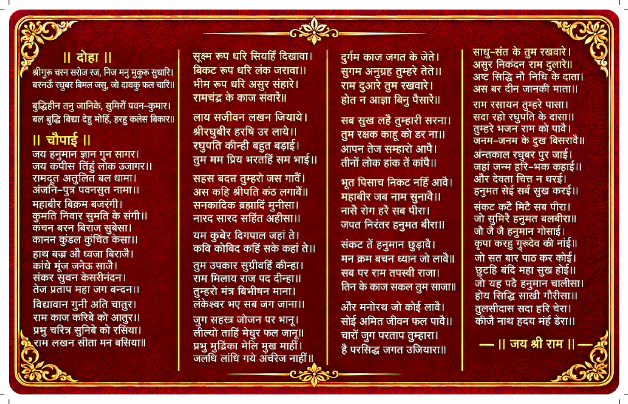 || दोहा ||
श्रीगुरु चरन सरोज रज, निज मनु मुकुरु सुधारि।
बरनऊँ रघुबर बिमल जसु, जो दायकु फल चारि॥
बुद्धिहीन तनु जानिके, सुमिरौं पवन-कुमार।
बल बुद्धि बिद्या देहु मोहिं, हरहु कलेस बिकार॥
|| चौपाई ||
जय हनुमान ज्ञान गुन सागर।
जय कपीस तिहुं लोक उजागर॥
रामदूत अतुलित बल धामा।
अंजनि-पुत्र पवनसुत नामा॥
महाबीर बिक्रम बजरंगी।
कुमति निवार सुमति के संगी॥
कंचन बरन बिराज सुबेसा।
कानन कुंडल कुंचित केसा॥
हाथ बज्र औ ध्वजा बिराजै।
कांधे मूंज जनेऊ साजै।
संकर सुवन केसरीनंदन।
तेज प्रताप महा जग बन्दन॥
विद्यावान गुनी अति चातुर।
राम काज करिबे को आतुर॥
प्रभु चरित्र सुनिबे को रसिया।
राम लखन सीता मन बसिया॥
सूक्ष्म रूप धरि सियहिं दिखावा।
बिकट रूप धरि लंक जरावा॥
भीम रूप धरि असुर संहारे।
रामचंद्र के काज संवारे॥
लाय सजीवन लखन जियाये।
श्रीरघुबीर हरषि उर लाये॥
रघुपति कीन्ही बहुत बड़ाई।
तुम मम प्रिय भरतहिं सम भाई॥
सहस बदन तुम्हरो जस गावैं।
अस कहि श्रीपति कंठ लगावैं॥
सनकादिक ब्रह्मादि मुनीसा।
नारद सारद सहित अहीसा॥
यम कुबेर दिगपाल जहां ते।
कवि कोबिद कहि सके कहां ते॥
तुम उपकार सुग्रीवहिं कीन्हा।
राम मिलाय राज पद दीन्हा॥
तुम्हरो मंत्र बिभीषन माना।
लंकेश्वर भए सब जग जाना॥
जुग सहस्त्र जोजन पर भानू।
लील्यो ताहि मधुर फल जानू॥
प्रभु मुद्रिका मेलि मुख माहीं।
जलधि लांघि गये अचरज नाहीं॥
दुर्गम काज जगत के जेते।
सुगम अनुग्रह तुम्हरे तेते॥
राम दुआरे तुम रखवारे।
होत न आज्ञा बिनु पैसारे॥
सब सुख लहै तुम्हारी सरना।
तुम रक्षक काहू को डर ना॥
आपन तेज सम्हारो आपै।
तीनों लोक हांक तें कांपै॥
भूत पिसाच निकट नहिं आवै।
महाबीर जब नाम सुनावै॥
नासै रोग हरै सब पीरा।
जपत निरंतर हनुमत बीरा॥
संकट तें हनुमान छुड़ावै।
मन क्रम बचन ध्यान जो लावै॥
सब पर राम तपस्वी राजा।
तिन के काज सकल तुम साजा॥
और मनोरथ जो कोई लावै।
सोई अमित जीवन फल पावै॥
चारों जुग परताप तुम्हारा।
है परसिद्ध जगत उजियारा॥
साधु-संत के तुम रखवारे।
असुर निकंदन राम दुलारे॥
अष्ट सिद्धि नौ निधि के दाता।
अस बर दीन जानकी माता॥
राम रसायन तुम्हरे पासा।
सदा रहो रघुपति के दासा॥
तुम्हरे भजन राम को पावै।
जनम-जनम के दुख बिसरावै॥
अन्तकाल रघुबर पुर जाई।
जहां जन्म हरि-भक्त कहाई॥
और देवता चित्त न धरई।
हनुमत सेई सर्ब सुख करई॥
संकट कटै मिटै सब पीरा।
जो सुमिरै हनुमत बलबीरा॥
जै जै जै हनुमान गोसाईं।
कृपा करहु गुरुदेव की नांई॥
जो सत बार पाठ कर कोई।
छूटहि बंदि महा सुख होई॥
जो यह पढै हनुमान चालीसा।
होय सिद्धि साखी गौरीसा॥
तुलसीदास सदा हरि चेरा।
कीजै नाथ हृदय मंह डेरा॥
|| जय श्री राम ||